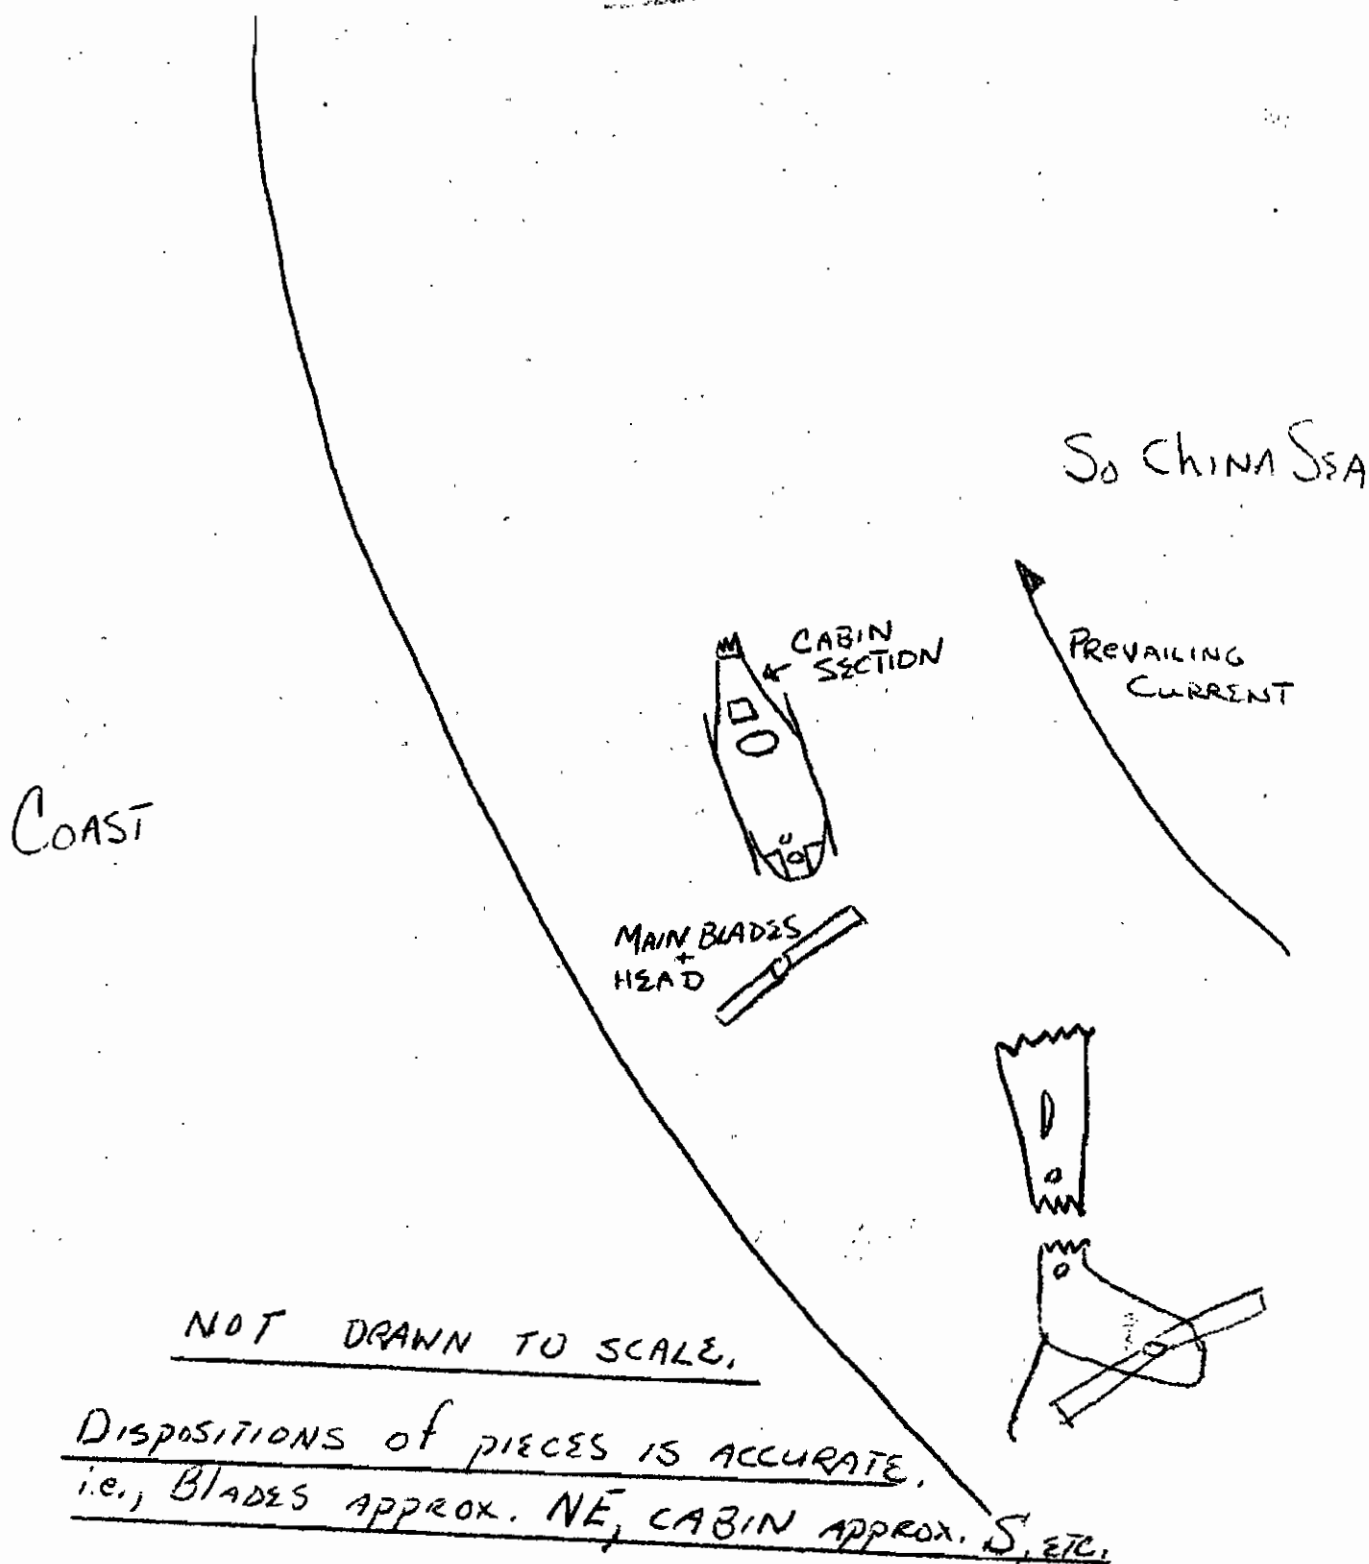 So ChINA SEA
CABIN
SECTION
PREVAILING
CURRENT
COAST
MAIN BLADES
+
HEAD
NOT DRAWN TO SCALE.
DISPOSITIONS of PIECES IS ACCURATE.
i.e., BLADES APPROX. NE, CABIN APPROX. S, ETC.